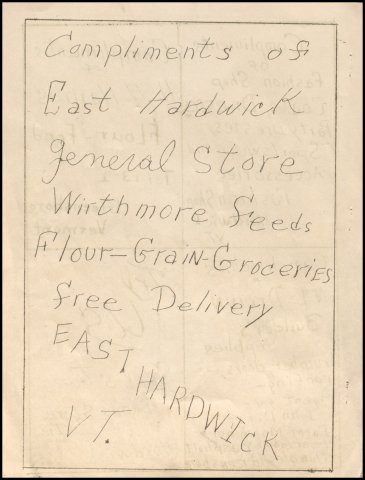 Compliments of
East Hardwick
general Store
Wirthmore feeds
Flour-Grain-Groceries
free Delivery
EAST HARDWICK
VT.